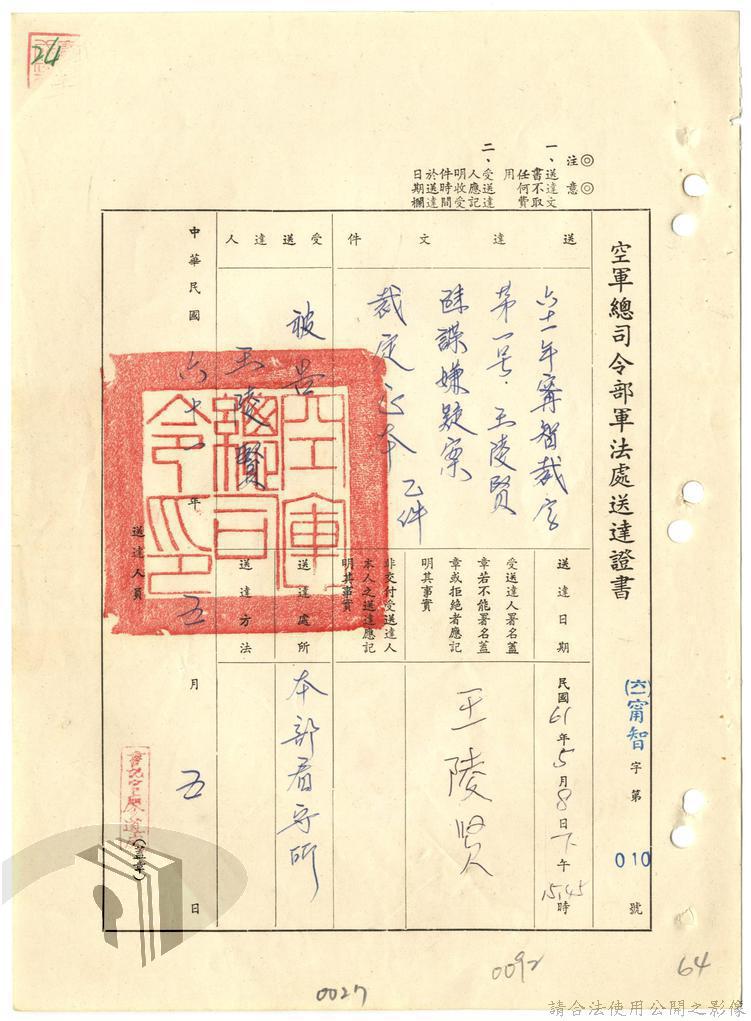 24
◎注意◎
一、送達文
書不取
任何費
用
二、受送達
人應記
明收受
件時間
於送達
日期欄
空軍總司令部軍法處送達證書
(六一)甯智字第010號
送達文件
六十一年甯智裁字
第一号,王陵賢
誅諜嫌疑案
裁定正本乙件
受送達人
被告
王陵賢
送達日期
民國61年5月8日下午15,45時
受送達人署名蓋
章若不能署名蓋
章或拒絕者應記
明其事實
王陵贤
非交付受送達人
本人之送達應記
明其事實
送達處所
本部看守所
送達方法
中華民國六十一年五月五日
空軍總司令印
送達人員
(蓋章)
0092
64
0027
請合法使用公開之影像